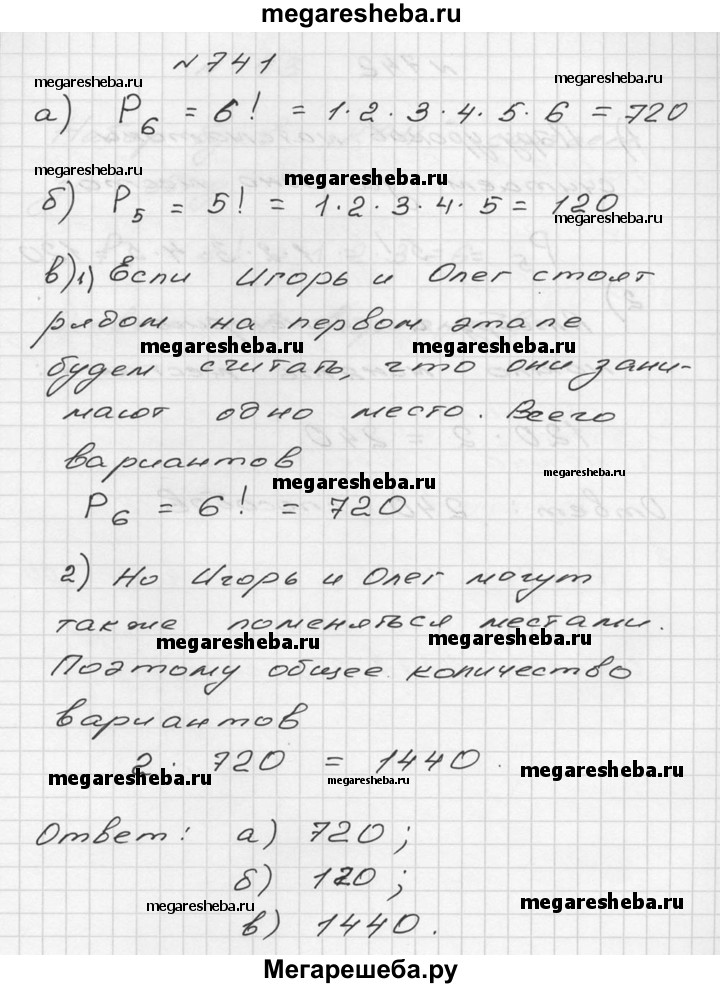 megaresheba.ru
№741
megaresheba.ru megaresheba.ru
а) P6 = 6! = 1·2·3·4·5·6 = 720
megaresheba.ru megaresheba.ru
б) P5 = 5! = 1·2·3·4·5 = 120
megaresheba.ru
в) 1) Если Игорь и Олег стоят
рядом на первом этапе
megaresheba.ru megaresheba.ru
будем считать, что они зани-
мают одно место. Всего
вариантов
megaresheba.ru megaresheba.ru
P6 = 6! = 720
2) Но Игорь и Олег могут
также поменяться местами.
megaresheba.ru megaresheba.ru
Поэтому общее количество
вариантов
2 · 720 = 1440.
megaresheba.ru megaresheba.ru megaresheba.ru
Ответ: а) 720;
б) 120;
megaresheba.ru megaresheba.ru
в) 1440.
Мегарешеба.ру